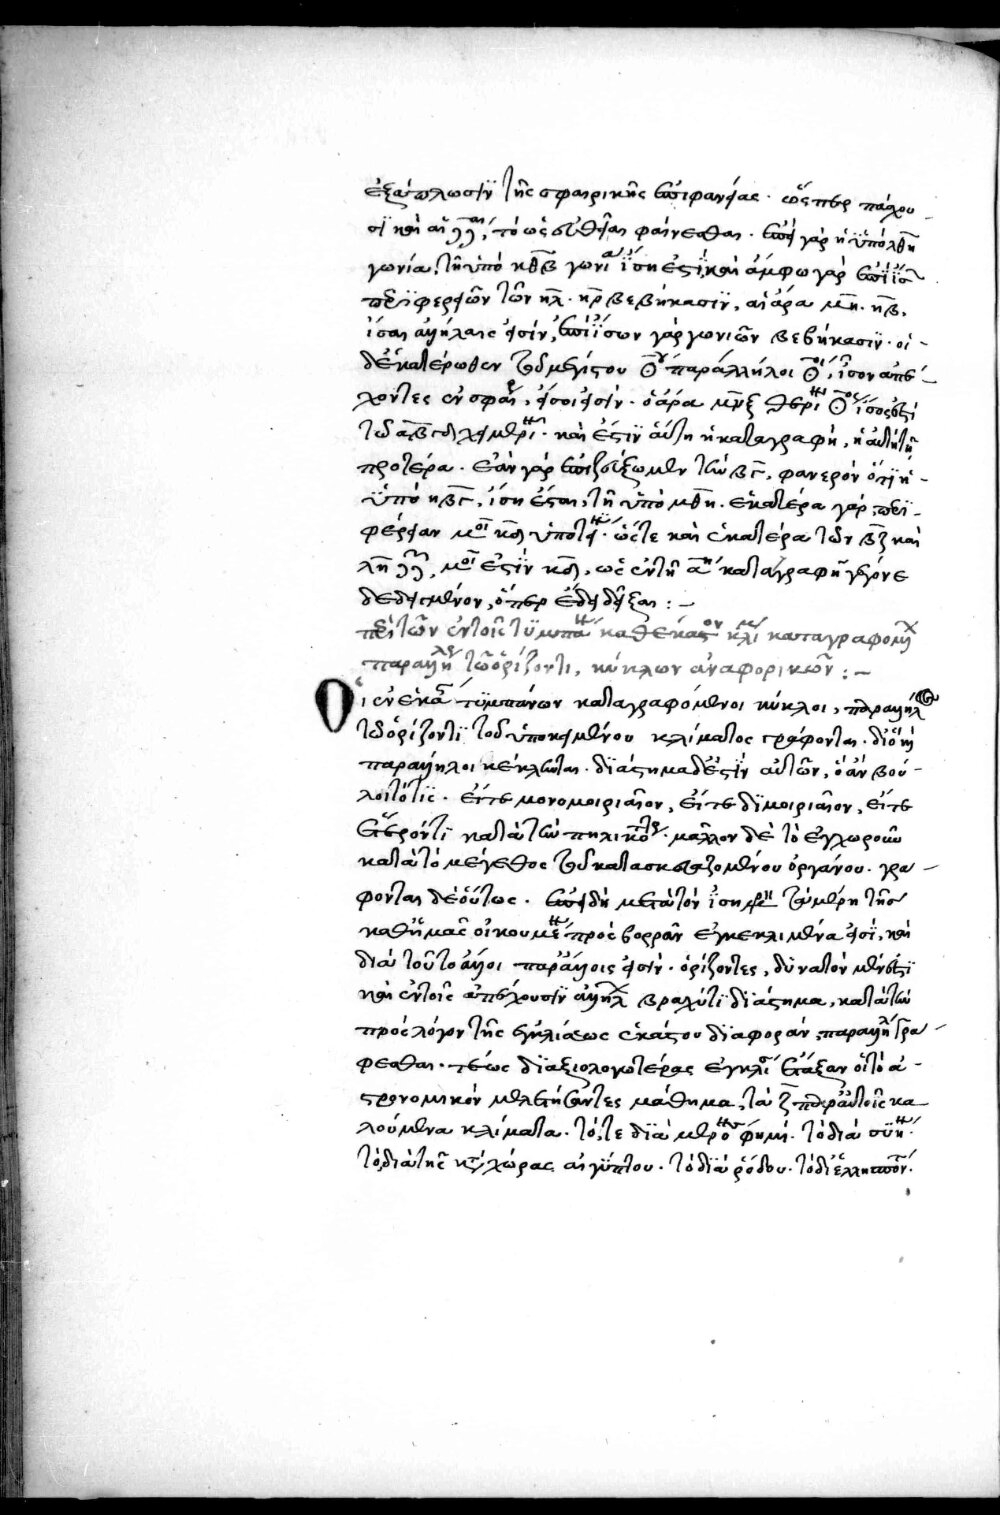 ἐξάπλωσιν τῆς σφαιρικῆς ἐπιφανείας · ὥσπερ πάχου
τὸ ὡς εὐθεῖαι φαίνεσθαι · ἐπεὶ γὰρ ἡ ὑπὸ λθη
γωνία, τῇ ὑπὸ κθβ γωνίᾳ ἴση ἐστὶ, καὶ ἄμφω γὰρ ἐπὶ ἴσ
περιφερειῶν τῶν ηλ · κβ βεβήκασιν, αἱ ἄρα μη · κβ,
ἴσαι ἀλλήλαις εἰσίν, ἐπὶ ἴσων γὰρ γωνιῶν βεβήκασιν · οἱ
δὲ ἑκατέρωθεν τοῦ μεγίστου παράλληλοι ἴσον ἀπέ
χοντες ἐν σφαί, ἴσοι εἰσίν · ὁ ἄρα μνξ ἴσος ἐστὶ
τῷ αβγδ χειμερι · καὶ ἔστιν αὕτη ἡ καταγραφὴ, ἡ αὐτὴ τῇ
προτέρᾳ · ἐὰν γὰρ ἐπιζεύξωμεν τὴν βγ, φανερὸν ὅτι ἡ
ὑπὸ ηβγ, ἴση ἔσται, τῇ ὑπὸ μθη · ἑκατέρα γὰρ, περι
φέρειαν μοι ὑποτεί · ὥστε καὶ ἑκατέρα τῶν βζ καὶ
λη μοι ἐστὶν, ὡς ἐν τῇ α καταγραφῇ γέγονε
δεδειγμένον, ὅπερ ἔδει δεῖξαι : –
περὶ τῶν ἐν τοῖς τυμπά καθ' ἕκαστον κλί καταγραφομ
παραλλήλ τῷ ὁρίζοντι, κύκλων ἀναφορικῶν : –
Οἱ ἐν ἑκά τυμπάνων καταγραφόμενοι κύκλοι, παράλληλ
τῷ ὁρίζοντι τοῦ ὑποκειμένου κλίματος γράφονται · διὸ καὶ
παράλληλοι κέκληνται · διάστημα δέ ἐστιν αὐτῶν, ὃ ἂν βού
λοιτό τις · εἴτε μονομοιριαῖον, εἴτε διμοιριαῖον, εἴτε
ἕτερόν τι κατὰ τὴν πηλικότ · μᾶλλον δὲ τὸ ἐγχωροῦν
κατὰ τὸ μέγεθος τοῦ κατασκευαζομένου ὀργάνου · γρά
φονται δὲ οὕτως · ἐπειδὴ μετὰ τὸν ἰσημε τὰ μέρη τῆς
καθ' ἡμᾶς οἰκουμέ πρὸς βορρᾶν ἐγκεκλιμένα εἰσὶ, καὶ
διὰ τοῦτο ἄλλοι παρ' ἄλλοις εἰσὶν · ὁρίζοντες, δυνατὸν μέν ἐστι
καὶ ἐν τοῖς ἀπέχουσιν ἀλλήλ βραχύ τι διάστημα, κατὰ τὴν
πρὸς λόγον τῆς ἐγκλίσεως ἑκάστου διαφορὰν, παραλλήλ γρά
φεσθαι · τέως δι' ἀξιολογωτέρας ἐγκλί ἔταξαν οἱ τὸ ἀ
στρονομικὸν μελετήσαντες μάθημα, τὰ ζ παρ' αὐτοῖς κα
λούμενα κλίματα · τό, τε διὰ μερό φημὶ · τὸ διὰ συή ·
τὸ διὰ τῆς κάτω χώρας αἰγύπτου · τὸ διὰ ῥόδου · τὸ δι' ἑλλησπόν ·